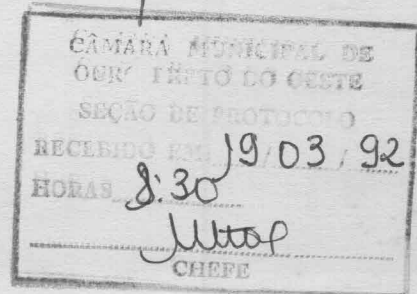 CÂMARA MUNICIPAL DE
OURO PRETO DO OESTE
SEÇÃO DE PROTOCOLO
RECEBIDO EM 19/03/92
HORAS 8:30
CHEFE